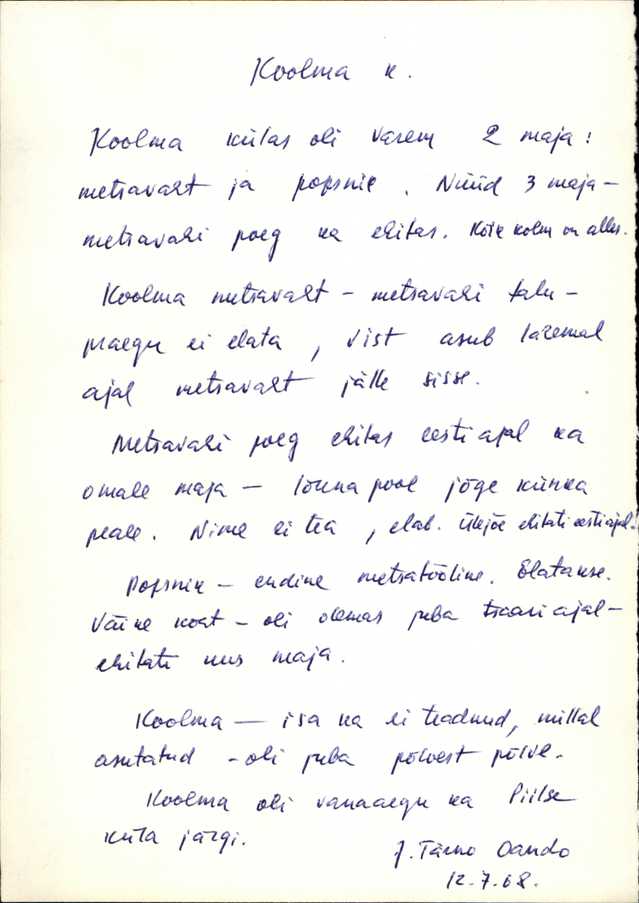 Koolma k.
Koolma külas oli varem 2 maja:
metsavaht ja popsnik. Nüüd 3 maja –
metsavahi poeg ka ehitas. Kõik kolm on alles.
Koolma metsavaht – metsavahi talu –
praegu ei elata, vist asub lähemal
ajal metsavaht jälle sisse.
Metsavahi poeg ehitas eesti ajal ka
omale maja – lõuna pool jõge künka
peale. Nime ei tea, elab. Ülejõe ehitati eesti ajal!
Popsnik – endine metsatööline. Elatakse.
Väike koht – oli olemas juba tsaari ajal –
ehitati uus maja.
Koolma – isa ka ei teadnud, millal
asutatud – oli juba põlvest põlve.
Koolma oli vanaaegu ka Piilse
küla järgi.
J. Tärno Oando
12.7.68.